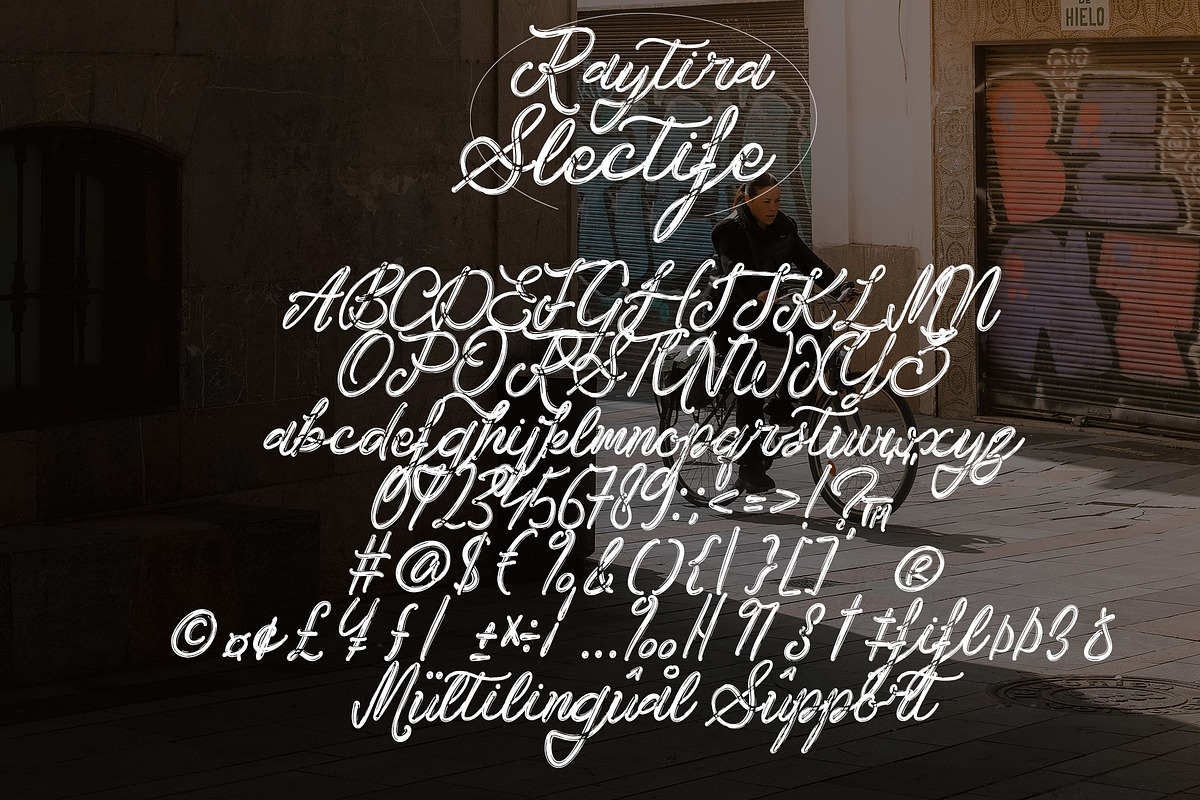 DE
HIELO
Raytira
Slectife
ABCDEFGHIJKLMN
OPQRSTUVWXYZ
abcdefghijklmnopqrstuvwxyz
0123456789:;<=>!?™
#@$€%&(){|}[]®
©¤¢£¥ƒ/±×÷¡…‰
Mültilingûål Support